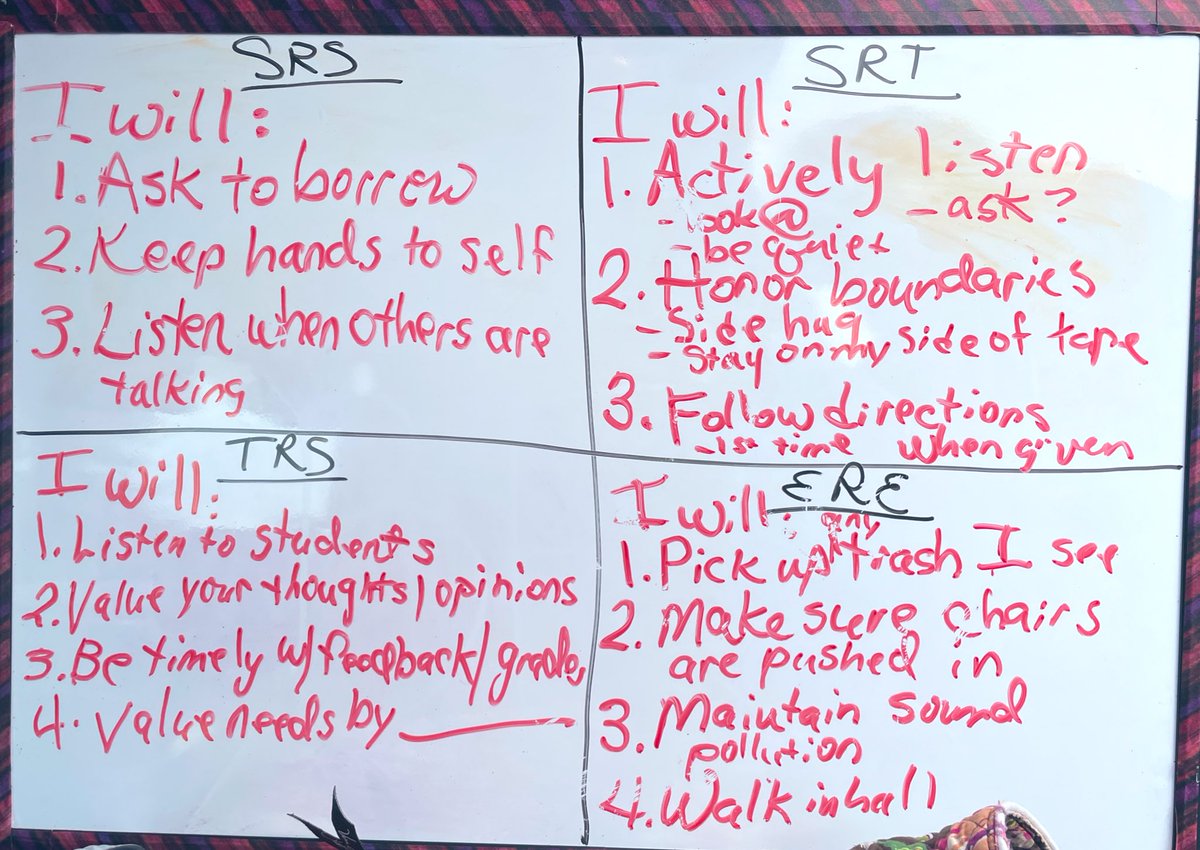 SRS
I will:
1. Ask to borrow
2. Keep hands to self
3. Listen when others are
talking
SRT
I will:
1. Actively listen
- look@ - ask?
- be quiet
2. Honor boundaries
- Side hug
- Stay on my side of tape
3. Follow directions
- 1st time when given
TRS
I will:
1. Listen to students
2. Value your thoughts/opinions
3. Be timely w/ feedback/grade,
4. Value needs by ______
ERE
I will:
any
1. Pick up ^ trash I see
2. Make sure chairs
are pushed in
3. Maintain sound
pollution
4. Walk in hall